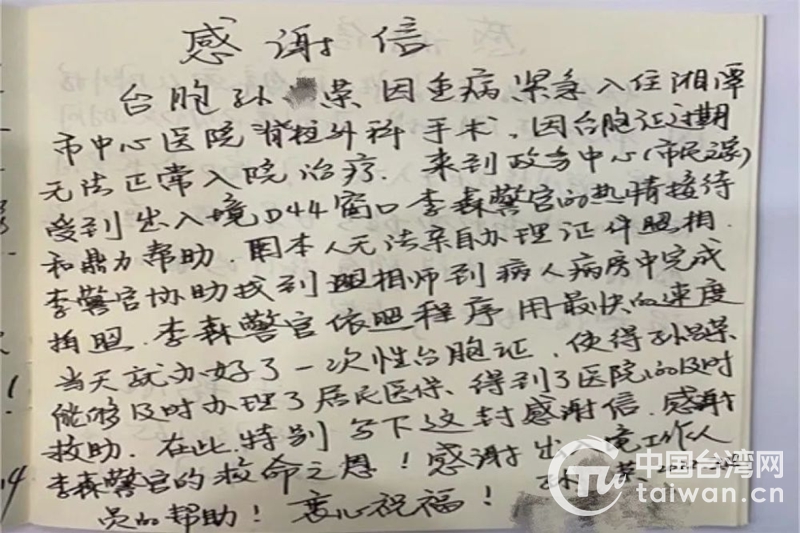 感谢信
台胞孙 荣因重病紧急入住湘潭
市中心医院脊柱外科手术，因台胞证过期
无法正常入院治疗．来到政务中心(市民之家)
受到出入境D44窗口李森警官的热情接待
和鼎力帮助．因本人无法亲自办理证件照相．
李警官协助找到照相师到病人病房中完成
拍照．李森警官依照程序用最快的速度
当天就办好了一次性台胞证．使得孙 荣
能够及时办理了居民医保．得到了医院的及时
救助．在此特别写下这封感谢信．感谢
李森警官的救命之恩！感谢出 境工作人
员的帮助！衷心祝福！ 孙 荣
中国台湾网
taiwan.cn
!
14